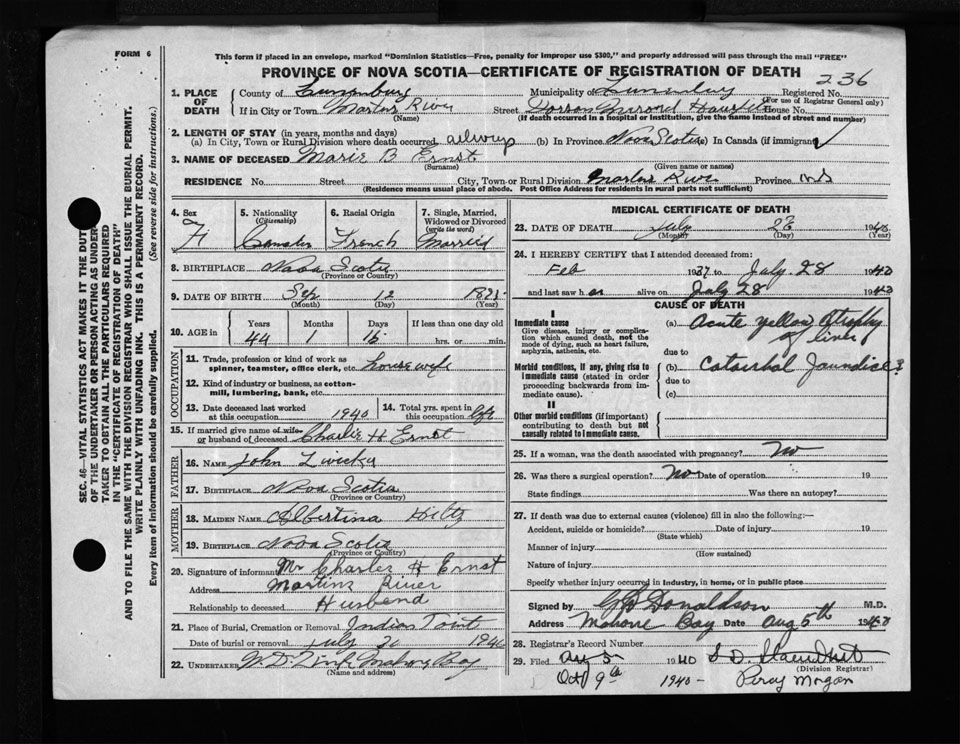 FORM 6
This form if placed in an envelope, marked "Dominion Statistics—Free, penalty for improper use $300," and properly addressed will pass through the mail "FREE"
PROVINCE OF NOVA SCOTIA—CERTIFICATE OF REGISTRATION OF DEATH
236
1. PLACE OF DEATH
County of Lunenburg Municipality of Lunenburg Registered No.
(For use of Registrar General only)
If in City or Town Martins River Street House No.
(Name) (If death occurred in a hospital or institution, give the name instead of street and number)
2. LENGTH OF STAY (in years, months and days)
(a) In City, Town or Rural Division where death occurred always (b) In Province Nova Scotia (c) In Canada (if immigrant)
3. NAME OF DECEASED Marie B Ernst
(Surname) (Given name or names)
RESIDENCE No. Street City, Town or Rural Division Martins River Province N S
(Residence means usual place of abode. Post Office Address for residents in rural parts not sufficient)
4. Sex F
5. Nationality (Citizenship)
6. Racial Origin French
7. Single, Married, Widowed or Divorced (write the word) Married
8. BIRTHPLACE Nova Scotia
(Province or Country)
9. DATE OF BIRTH Sep 12
(Month) (Day) (Year)
10. AGE in Years Months Days If less than one day old
44 1 hrs. or min.
OCCUPATION
11. Trade, profession or kind of work as spinner, teamster, office clerk, etc. housewife
12. Kind of industry or business, as cotton-mill, lumbering, bank, etc.
13. Date deceased last worked at this occupation 1940
14. Total yrs. spent in this occupation
15. If married give name of wife or husband of deceased Charlie H Ernst
FATHER
16. NAME John
17. BIRTHPLACE Nova Scotia
(Province or Country)
MOTHER
18. MAIDEN NAME Albertina Hiltz
19. BIRTHPLACE Nova Scotia
(Province or Country)
20. Signature of informant Mr Charles H Ernst
Address Martins River
Relationship to deceased Husband
21. Place of Burial, Cremation or Removal Indian Point
Date of burial or removal July 1940
22. UNDERTAKER Mahone Bay
(Name and address)
MEDICAL CERTIFICATE OF DEATH
23. DATE OF DEATH July 1940
(Month) (Day) (Year)
24. I HEREBY CERTIFY that I attended deceased from:
Feb 1937 to July 28 1940
and last saw h er alive on July 28 1940
CAUSE OF DEATH
I
Immediate cause
Give disease, injury or complication which caused death, not the mode of dying, such as heart failure, asphyxia, asthenia, etc.
(a) Acute yellow Atrophy of liver
due to
Morbid conditions, if any, giving rise to immediate cause (stated in order proceeding backwards from immediate cause).
(b) Catarrhal Jaundice?
due to
(c)
II
Other morbid conditions (if important) contributing to death but not causally related to immediate cause.
25. If a woman, was the death associated with pregnancy? No
26. Was there a surgical operation? No Date of operation 19
State findings Was there an autopsy?
27. If death was due to external causes (violence) fill in also the following:—
Accident, suicide or homicide? Date of injury 19
(State which)
Manner of injury
(How sustained)
Nature of injury
Specify whether injury occurred in industry, in home, or in public place
Signed by Donaldson M.D.
Address Mahone Bay Date Aug 5th 1940
28. Registrar's Record Number
29. Filed Aug 5 1940
(Division Registrar)
Oct 9th 1940 - Percy Morgan
SEC. 46—VITAL STATISTICS ACT MAKES IT THE DUTY
OF THE UNDERTAKER OR PERSON ACTING AS UNDERTAKER TO OBTAIN ALL THE PARTICULARS REQUIRED
IN THE "CERTIFICATE OF REGISTRATION OF DEATH"
AND TO FILE THE SAME WITH THE DIVISION REGISTRAR WHO SHALL ISSUE THE BURIAL PERMIT.
WRITE PLAINLY WITH UNFADING INK. THIS IS A PERMANENT RECORD.
Every item of information should be carefully supplied. (See reverse side for instructions.)